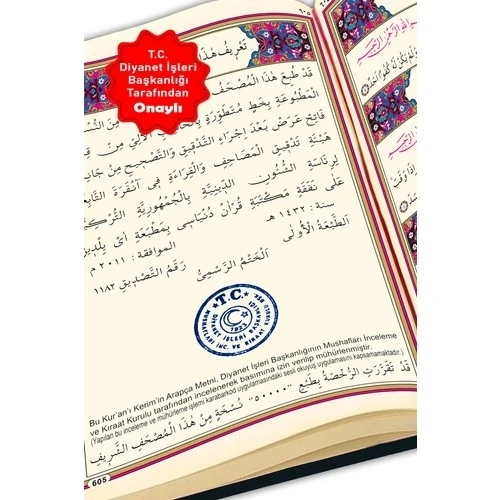 T.C.
Diyanet İşleri
Başkanlığı
Tarafından
Onaylı
٦٠٥
تَعْرِيفُ هٰذَا
قَدْ طُبِعَ هٰذَا الْمُصْحَفُ
الْمَطْبُوعَةِ بِخَطٍّ مُتَطَوِّرَةٍ
فَاتِحْ عَرَضَ بَعْدَ إِجْرَاءِ التَّدْقِيقِ وَالتَّصْحِيحِ مِنْ
هَيْئَةِ تَدْقِيقِ الْمَصَاحِفِ وَالْقِرَاءَةِ فِي أَنْقَرَةَ
لِرِئَاسَةِ الشُّئُونِ الدِّينِيَّةِ بِالْجُمْهُورِيَّةِ
عَلَى نَفَقَةِ مَكْتَبَةِ قُرْآن دُنْيَاسِي بِمَطْبَعَةِ
سنة : ١٤٣٢ هـ الموافقة : ٢٠١١ م
اَلطَّبْعَةُ الْأُولٰى
اَلْخَتْمُ الرَّسْمِيُّ رَقَمُ التَّصْدِيقِ ١١٨٢
T.C.
DİYANET İŞLERİ BAŞKANLIĞI
MUSHAFLARI İNC. VE KIRAAT KURULU
1923
Bu Kur'an'ı Kerim'in Arapça Metni, Diyanet İşleri Başkanlığının Mushafları İnceleme
ve Kıraat Kurulu tarafından incelenerek basımına izin verilip mühürlenmiştir.
(Yapılan bu inceleme ve mühürleme işlemi karabarkod uygulamasındaki sesli okuyuş uygulamasını kapsamamaktadır.)
قَدْ تَقَرَّرَتِ الرُّخْصَةُ بِطَبْعِ "٥٠٠٠٠" نُسْخَةً مِنْ هٰذَا الْمُصْحَفِ الشَّرِيفِ
605